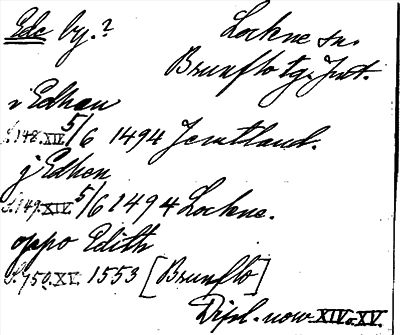 Ede by.? Lockne sn.
Brunflo tg. Jmt.
i Edhen
S.148.XIV. 5/6 1494 Jemtland.
j Edhen
S.149.XIV. 5/6 1494 Lockne.
oppo Edith
S.750.XV. 1553 [Brunflo]
Dipl. norv. XIV-XV.